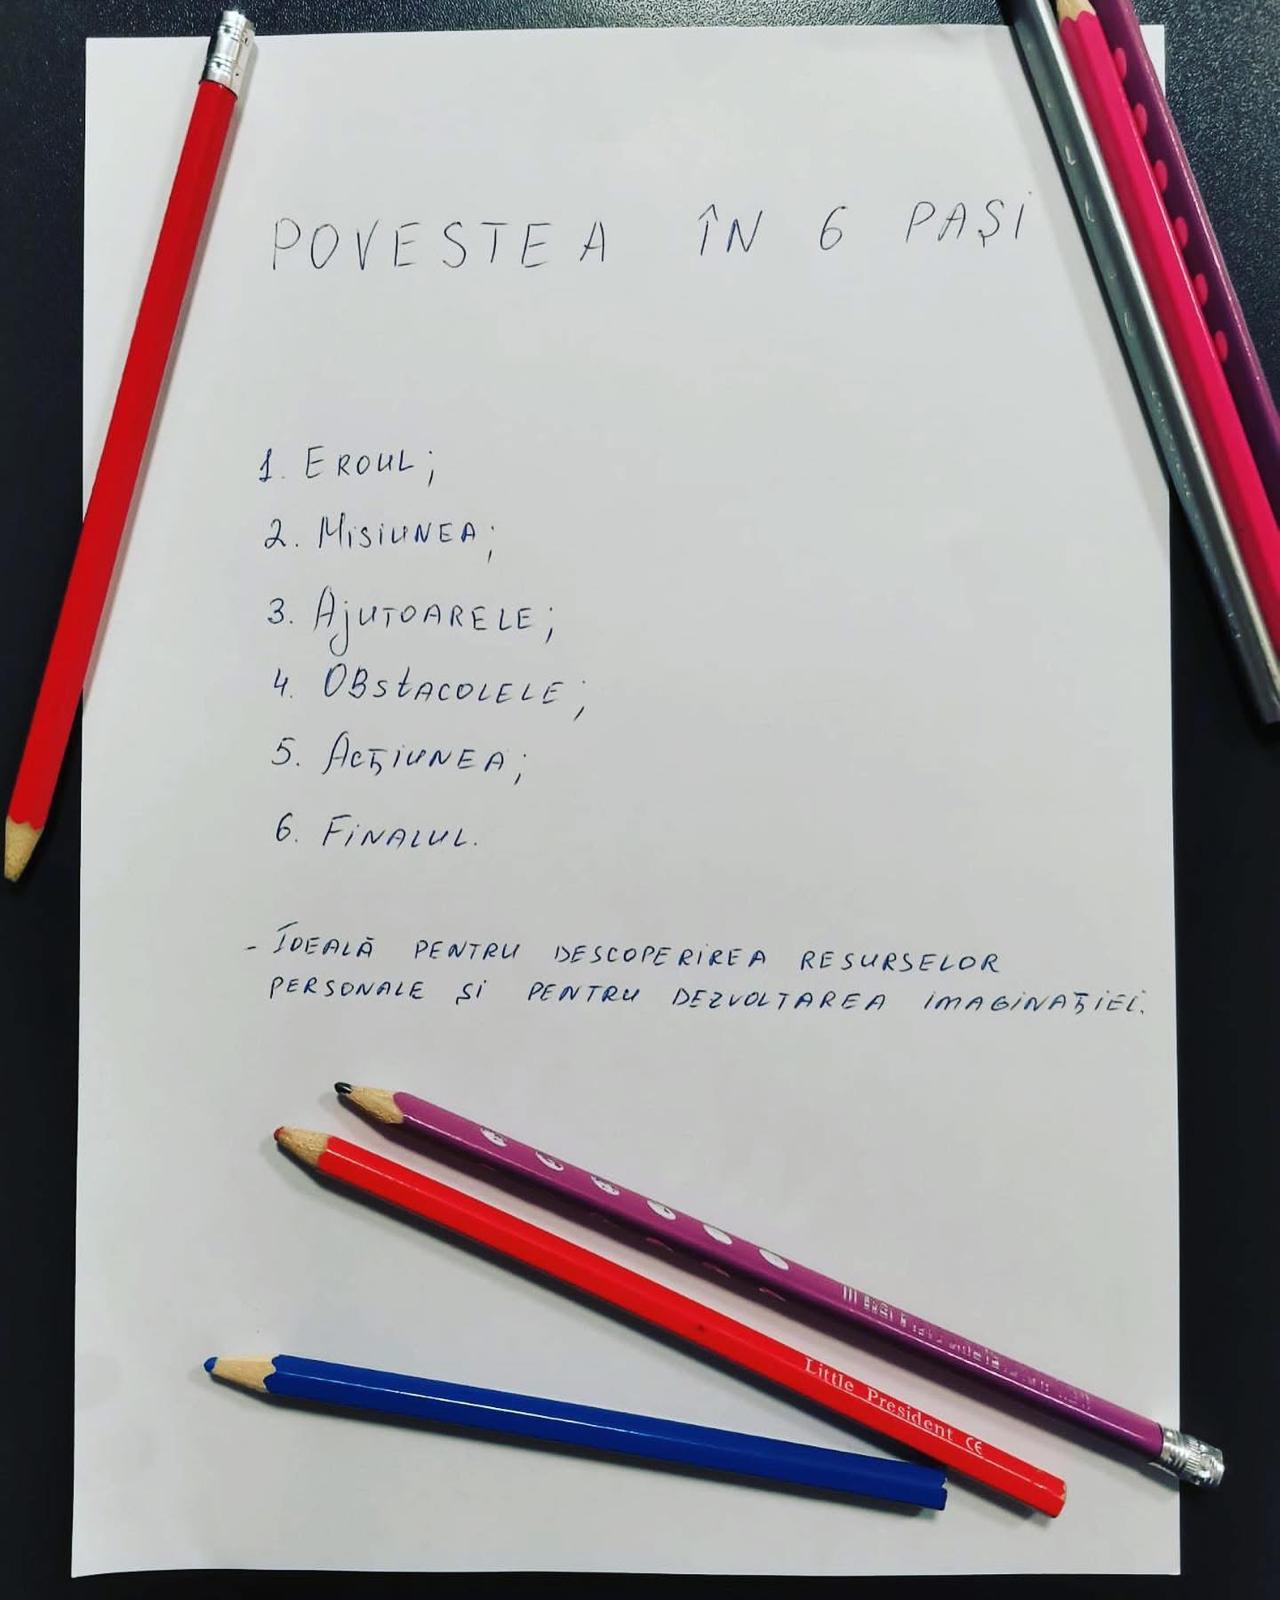 POVESTEA ÎN 6 PAȘI
1. EROUL;
2. MISIUNEA;
3. AJUTOARELE;
4. OBSTACOLELE;
5. ACȚIUNEA;
6. FINALUL.
- IDEALĂ PENTRU DESCOPERIREA RESURSELOR
PERSONALE ȘI PENTRU DEZVOLTAREA IMAGINAȚIEI.
Little President CE